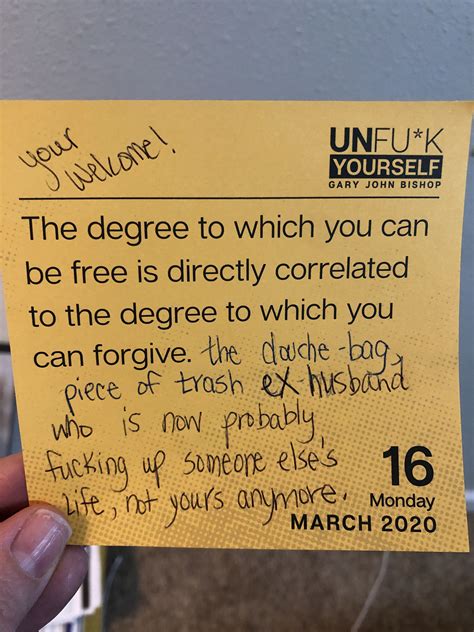 your
welcome!
UNFU*K
YOURSELF
GARY JOHN BISHOP
The degree to which you can
be free is directly correlated
to the degree to which you
can forgive. the douche-bag,
piece of trash ex-husband
who is now probably
fucking up someone else's
life, not yours anymore.
16
Monday
MARCH 2020